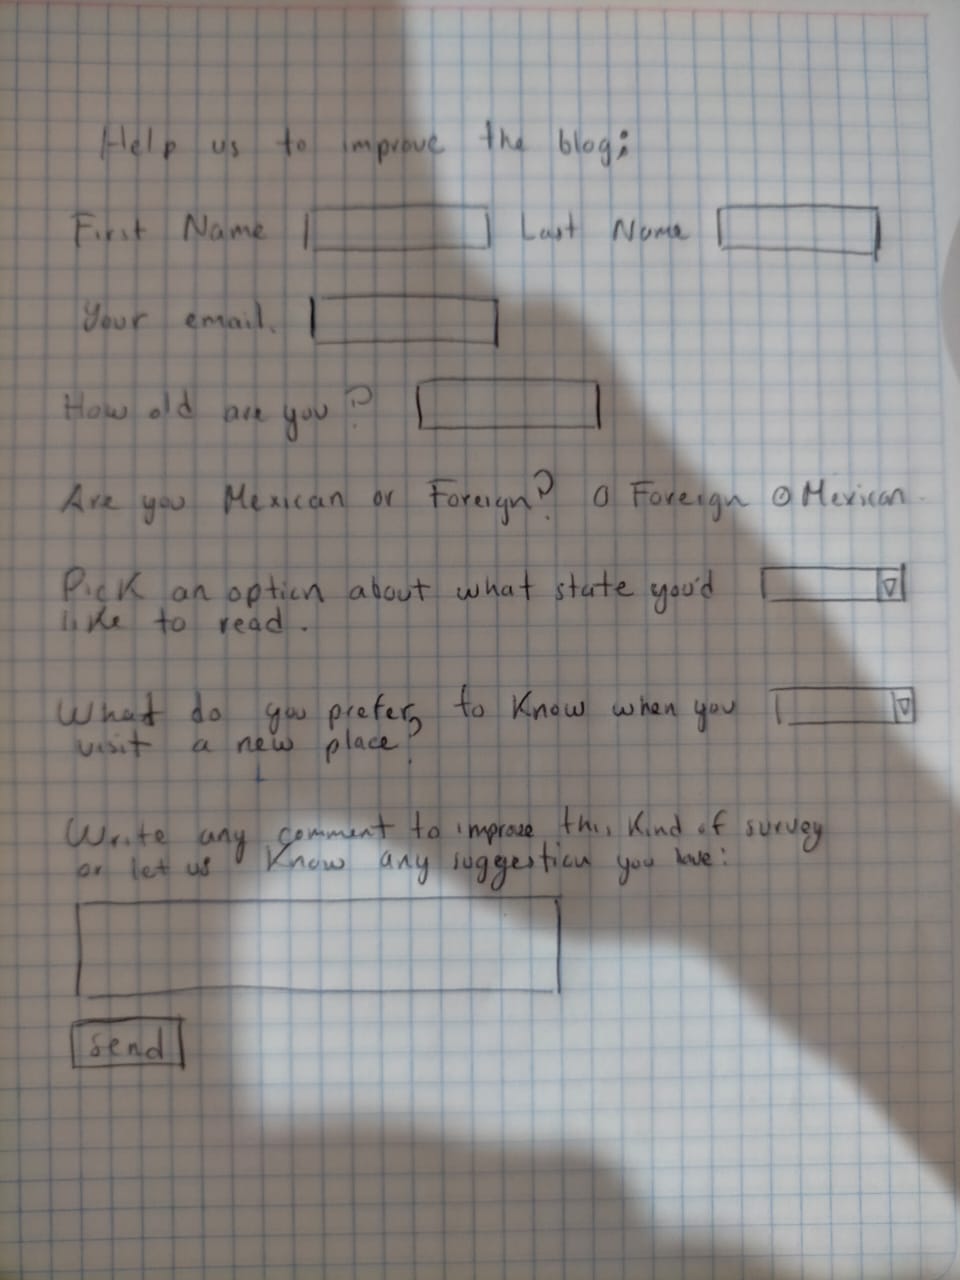 Help us to improve the blog:
First Name Last Name
Your email.
How old are you?
Are you Mexican or Foreign? Foreign Mexican
Pick an option about what state you'd
like to read.
What do you prefer to know when you
visit a new place?
Write any comment to improve this kind of survey
or let us know any suggestion you have:
Send